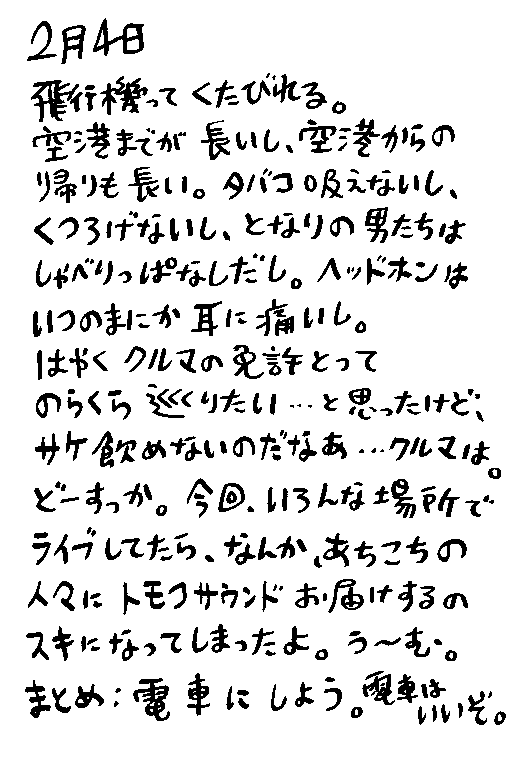 2月4日
飛行機ってくたびれる。
空港までが長いし、空港からの
帰りも長い。タバコ吸えないし、
くつろげないし、となりの男たちは
しゃべりっぱなしだし。ヘッドホンは
いつのまにか耳に痛いし。
はやくクルマの免許とって
のらくら巡りたい…と思ったけど、
サケ飲めないのだなあ…クルマは。
どーすっか。今回、いろんな場所で
ライブしてたら、なんか、あちこちの
人々にトモフサウンドお届けするの
スキになってしまったよ。う〜む。
まとめ:電車にしよう。電車は
いいぞ。